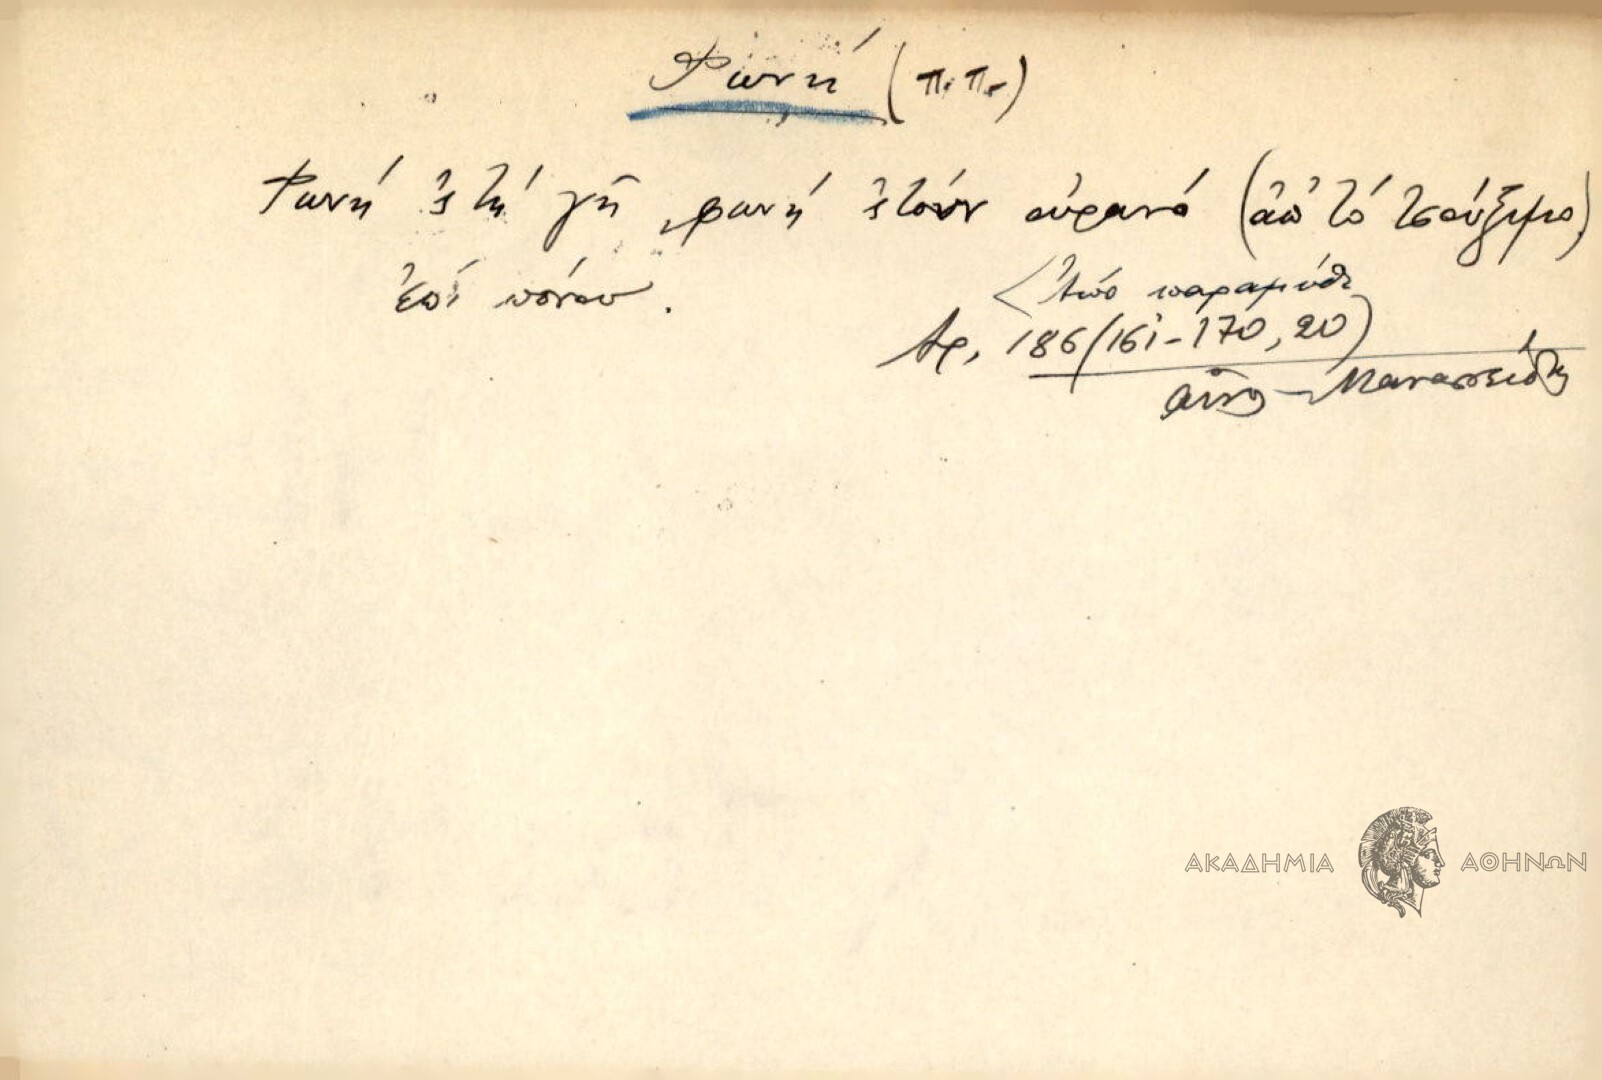 Φωνή (π.π.)
Φωνή 'ς τή γῆ, φωνή 'ς τόν οὐρανό (ἀπ' τό τσούξιμο)
ἐπί πόνου.
<Ἀπό παραμύθι
Ἀρ. 186 (161-170, 20)
Αἶνος - Μανασσείδης
ΑΚΑΔΗΜΙΑ ΑΘΗΝΩΝ